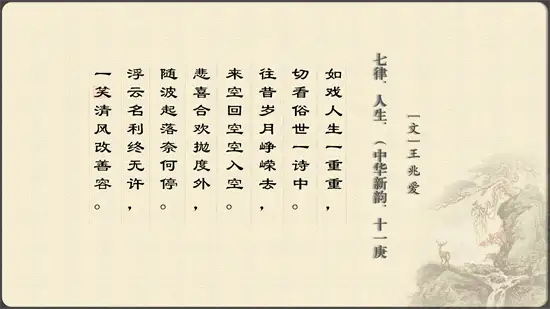 七律、人生、（中华新韵、十一庚
｜文｜王兆爱
如戏人生一重重，
切看俗世一诗中。
往昔岁月峥嵘去，
来空回空空入空。
悲喜合欢抛度外，
随波起落奈何停。
浮云名利终无许，
一笑清风改善容。